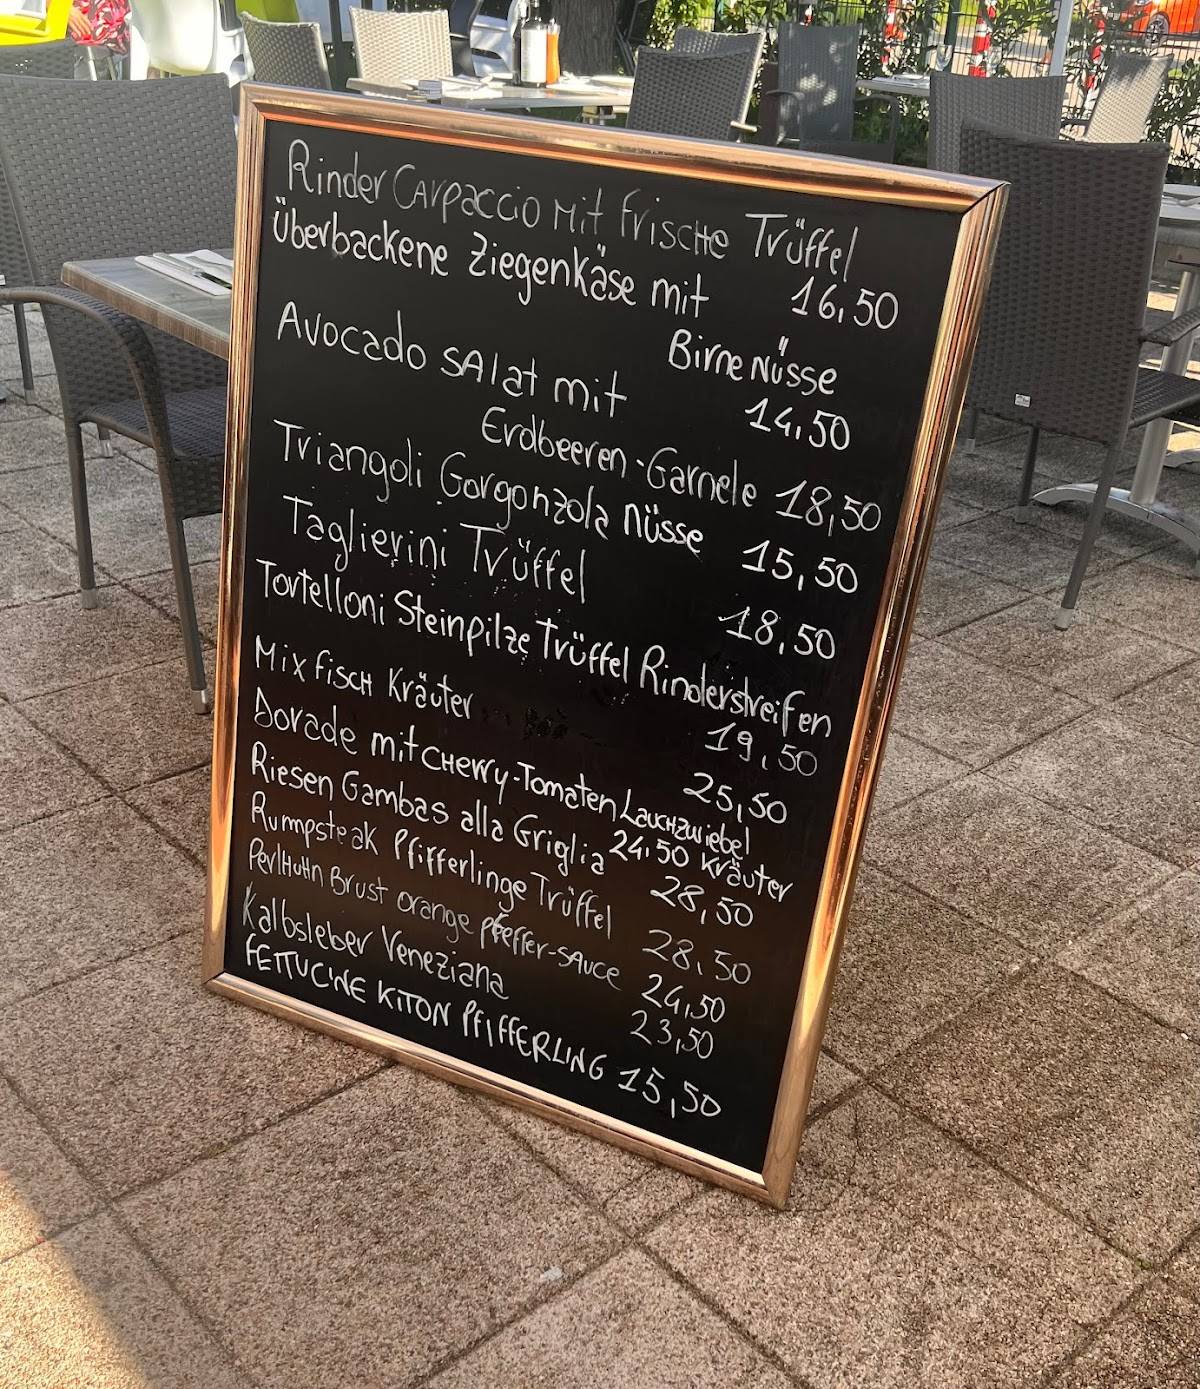 Rinder Carpaccio mit frische Trüffel
16,50
Überbackene Ziegenkäse mit
Birne Nüsse
14,50
Avocado Salat mit
Erdbeeren-Garnele 18,50
Triangoli Gorgonzola Nüsse 15,50
Taglierini Trüffel 18,50
Tortelloni Steinpilze Trüffel Rinderstreifen
19,50
Mix Fisch Kräuter 25,50
Dorade mit Cherry-Tomaten Lauchzwiebel
24,50 Kräuter
Riesen Gambas alla Griglia 28,50
Rumpsteak Pfifferlinge Trüffel 28,50
Perlhuhn Brust orange pfeffer-sauce 24,50
Kalbsleber Veneziana 23,50
FETTUC'NE KITON PFIFFERLING 15,50